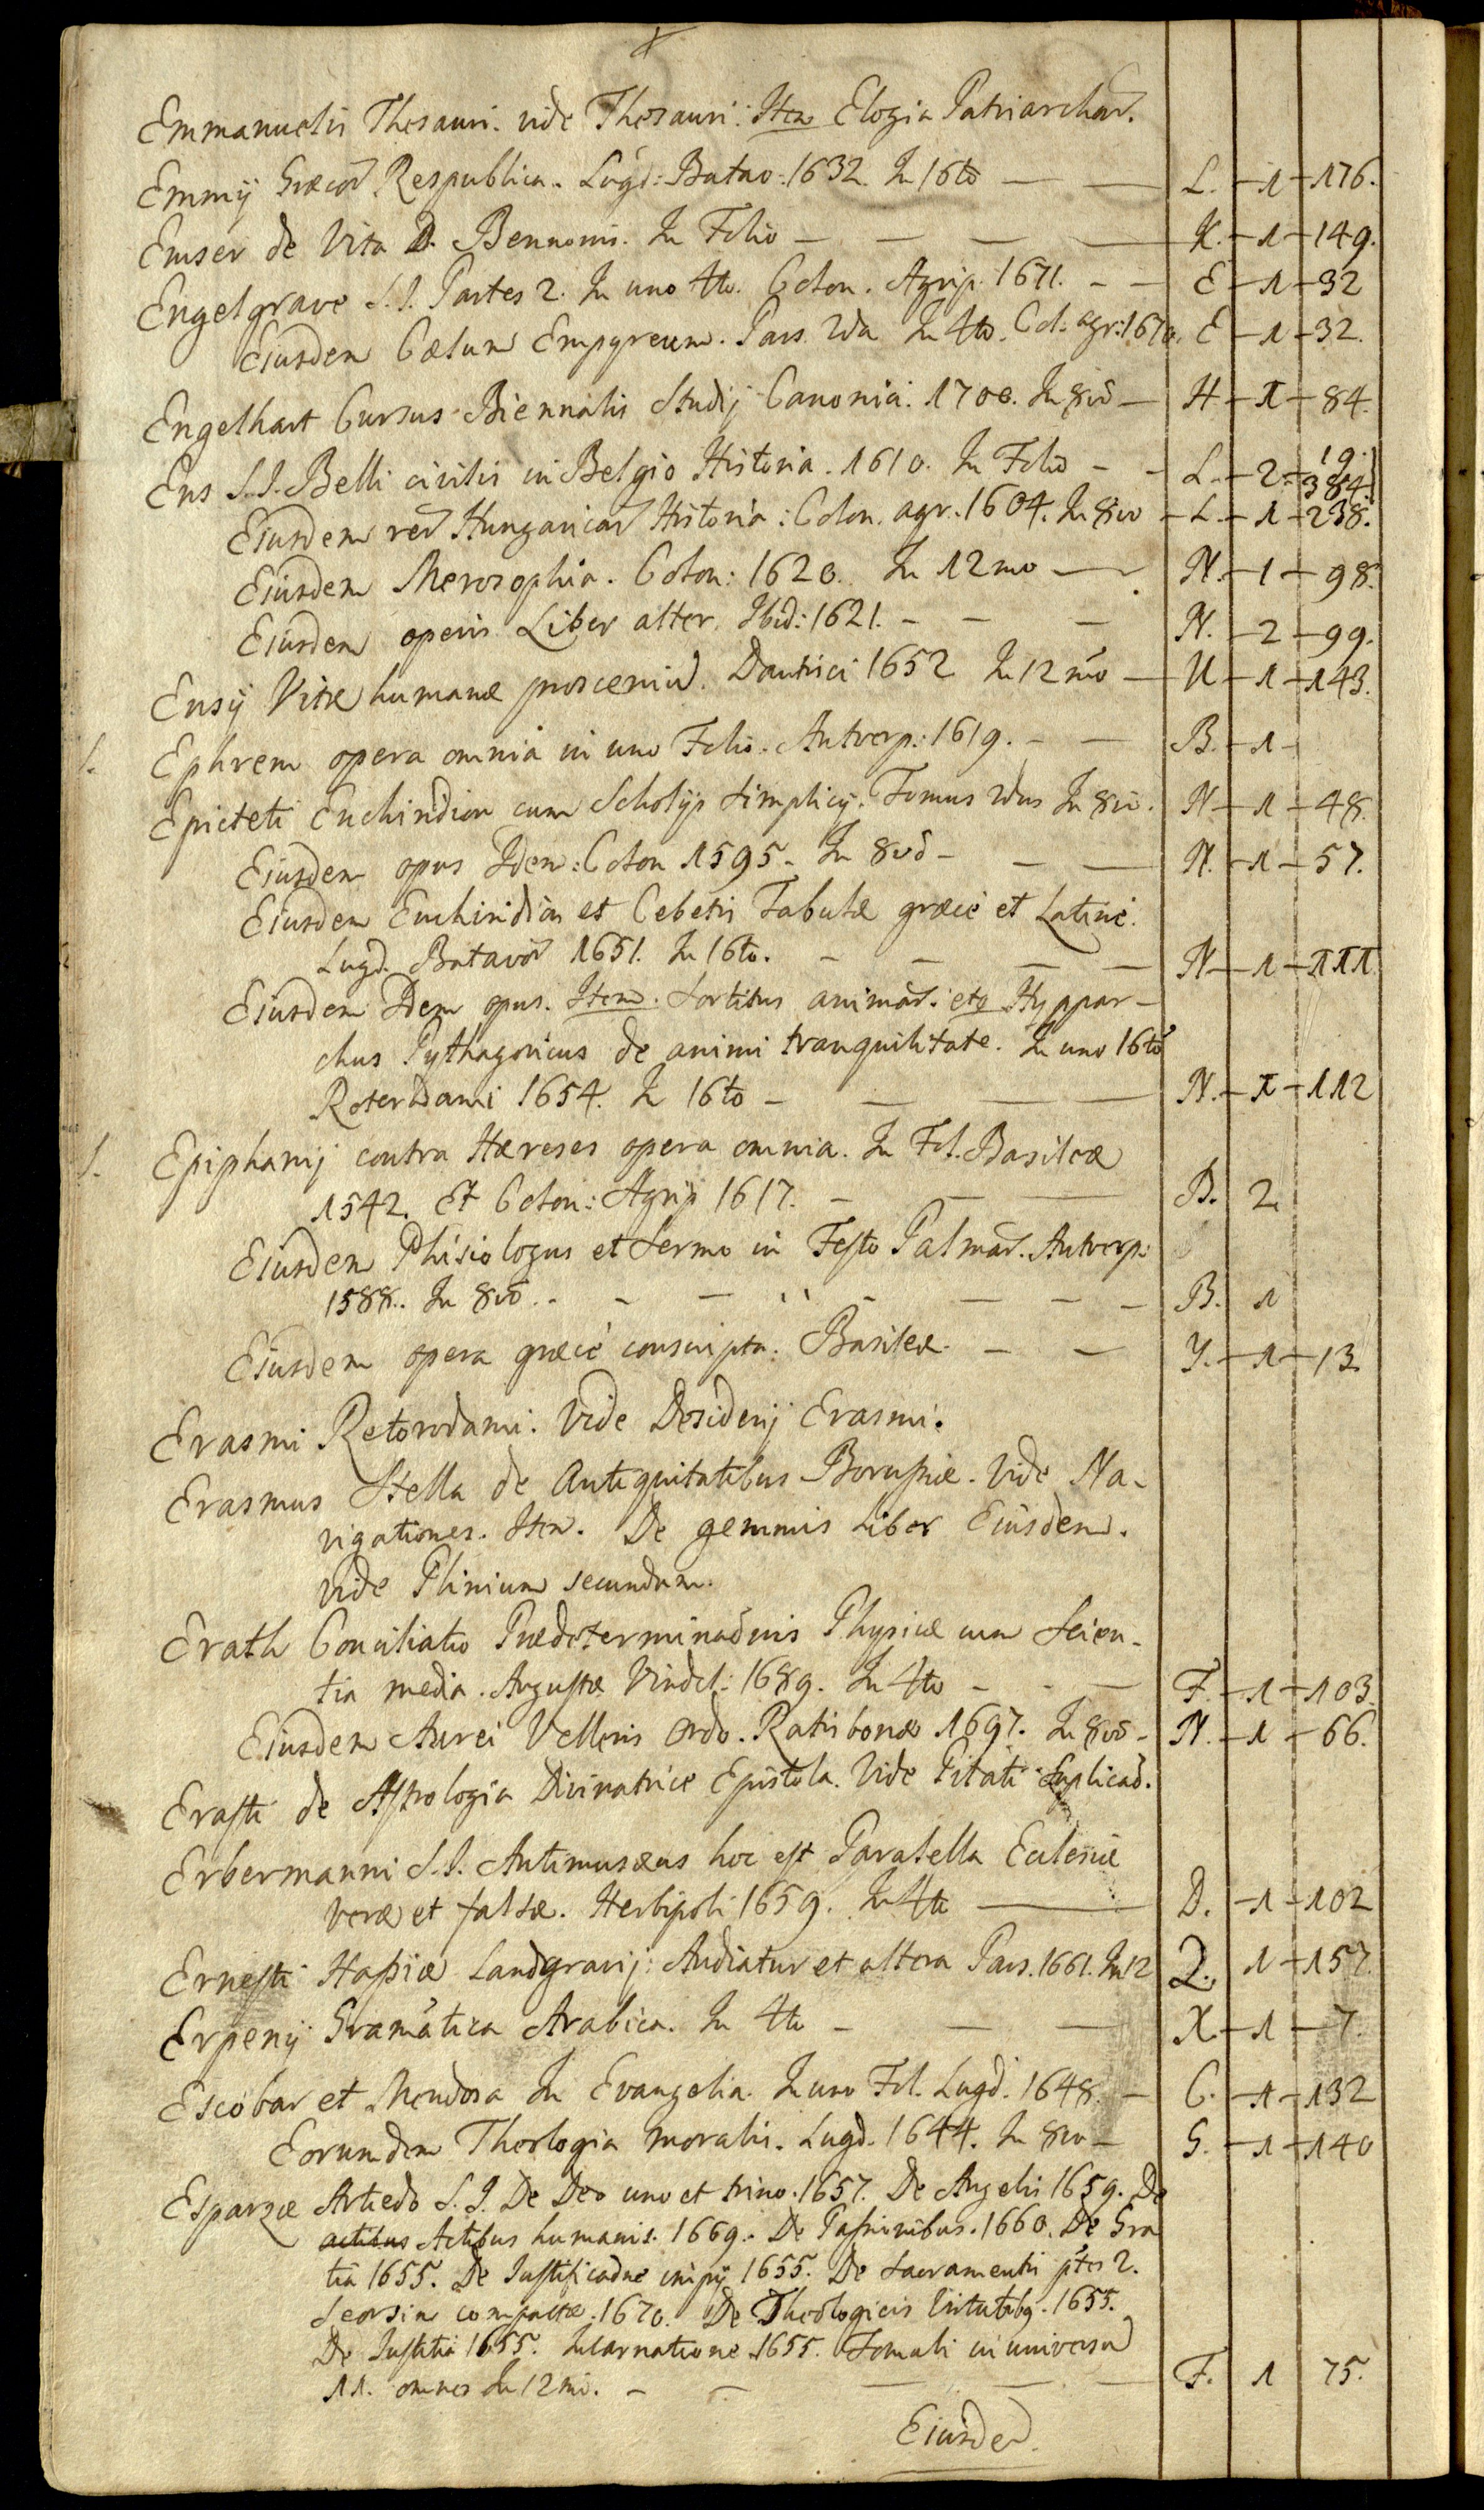 Emmanuelis Thesauri. vide Thesauri: Item Elogia Patriarchar.
Emmij Græcor Respublica. Lugd: Batav: 1632. In 16to — — L. — 1 — 176.
Emser de Vita D. Bennonis. In Folio — — — — K. — 1 — 149.
Engelgrave S.J. Partes 2. In uno 4to. Colon. Agrip. 1671. — — E — 1 — 32
Eiusdem Cælum Empyreum. Pars 2da In 4to. Col. agr: 1670. E — 1 — 32.
Engelhart Cursus Biennalis Studij Canonici. 1700. In 8vo — H — 1 — 84.
Ens S.J. Belli civilis in Belgio Historia. 1610. In Folio — — L. — 2. — 19. 384
Eiusdem rer Hungaricar Historia: Colon. agr. 1604. In 8vo — L. — 1 — 238.
Eiusdem Morosophia. Colon: 1620. In 12mo — N. — 1 — 98.
Eiusdem operis Liber alter. Ibid: 1621. — — — N. — 2 — 99.
Ensij Vitæ humanæ proscenium. Dantisci 1652 In 12mo — N — 1 — 143.
S. Ephrem opera omnia in uno Folio. Antverp: 1619. — — B. — 1 —
Epicteti Enchiridion cum Scholijs Simplicij. Tomus 2dus In 8vo. N — 1 — 48.
Eiusdem opus Idem: Colon 1595. In 8vo — — — N. — 1 — 57.
Eiusdem Enchiridion et Cebetis Tabula græcè et Latinè.
Lugd. Batavor 1651. In 16to. — — — — N — 1 — 111
Eiusdem Idem opus. Item. Sortitus animar. etq Hyppar-
chus Pythagoricus de animi tranquilitate. In uno 16to
Roterdami 1654. In 16to — — — — N. — 1 — 112
S. Epiphanij contra Hæreses opera omnia. In Fol. Basileæ
1542. Et Colon: Agrip 1617. — — — B. 2.
Eiusdem Phisiologus et Sermo in Festo Palmar. Antverp:
1588. In 8vo. — — — — — — — B. 1
Eiusdem opera græcè conscripta. Basileæ. — — Y. — 1 — 13.
Erasmi Retorodami. Vide Desiderij Erasmi.
Erasmus Stella de Antiquitatibus Borussiæ. Vide Na-
vigationes. Item. De gemmis Liber Eiusdem.
vide Plinium secundum.
Erath Conciliatio Prædeterminaõnis Physicæ cum Scien-
tia media. Augustæ Vindel: 1689. In 4to — — — F. — 1 — 103.
Eiusdem Aurei Velleris Ordo. Ratisbonæ 1697. In 8vo — N. — 1 — 66.
Erasti de Astrologia Divinatrice Epistola. Vide Pitati
Erbermanni S.J. Antimusæus hoc est Paralella Ecclesiæ
veræ et falsæ. Herbipoli 1659. In 4to — D. — 1 — 102
Ernesti Hassiæ Landgravij: Audiatur et altera Pars. 1661. In 12 Q. 1 — 157.
Erpenij Gramatica Arabica. In 4to — — — X. — 1 — 7.
Escobar et Mendosa In Evangelia. In uno Fol. Lugd. 1648. — C. — 1 — 132
Eorumdem Theologia moralis. Lugd. 1644. In 8vo — G. — 1 — 140
Esparzæ Artiedo S.J. De Deo uno et trino. 1657. De Angelis 1659. De
actibus Actibus humanis. 1669. De Passionibus. 1660. De Gra
tiâ 1655. De Justificaõne impij 1655. De Sacramentis ptes 2.
Seorsim compactæ. 1670. De Theologicis Virtutibq. 1655.
De Justitia 1655. Incarnatione 1655. Tomuli in universum
11. omnes In 12mo. — — — — — F. 1 75.
Eiusdem